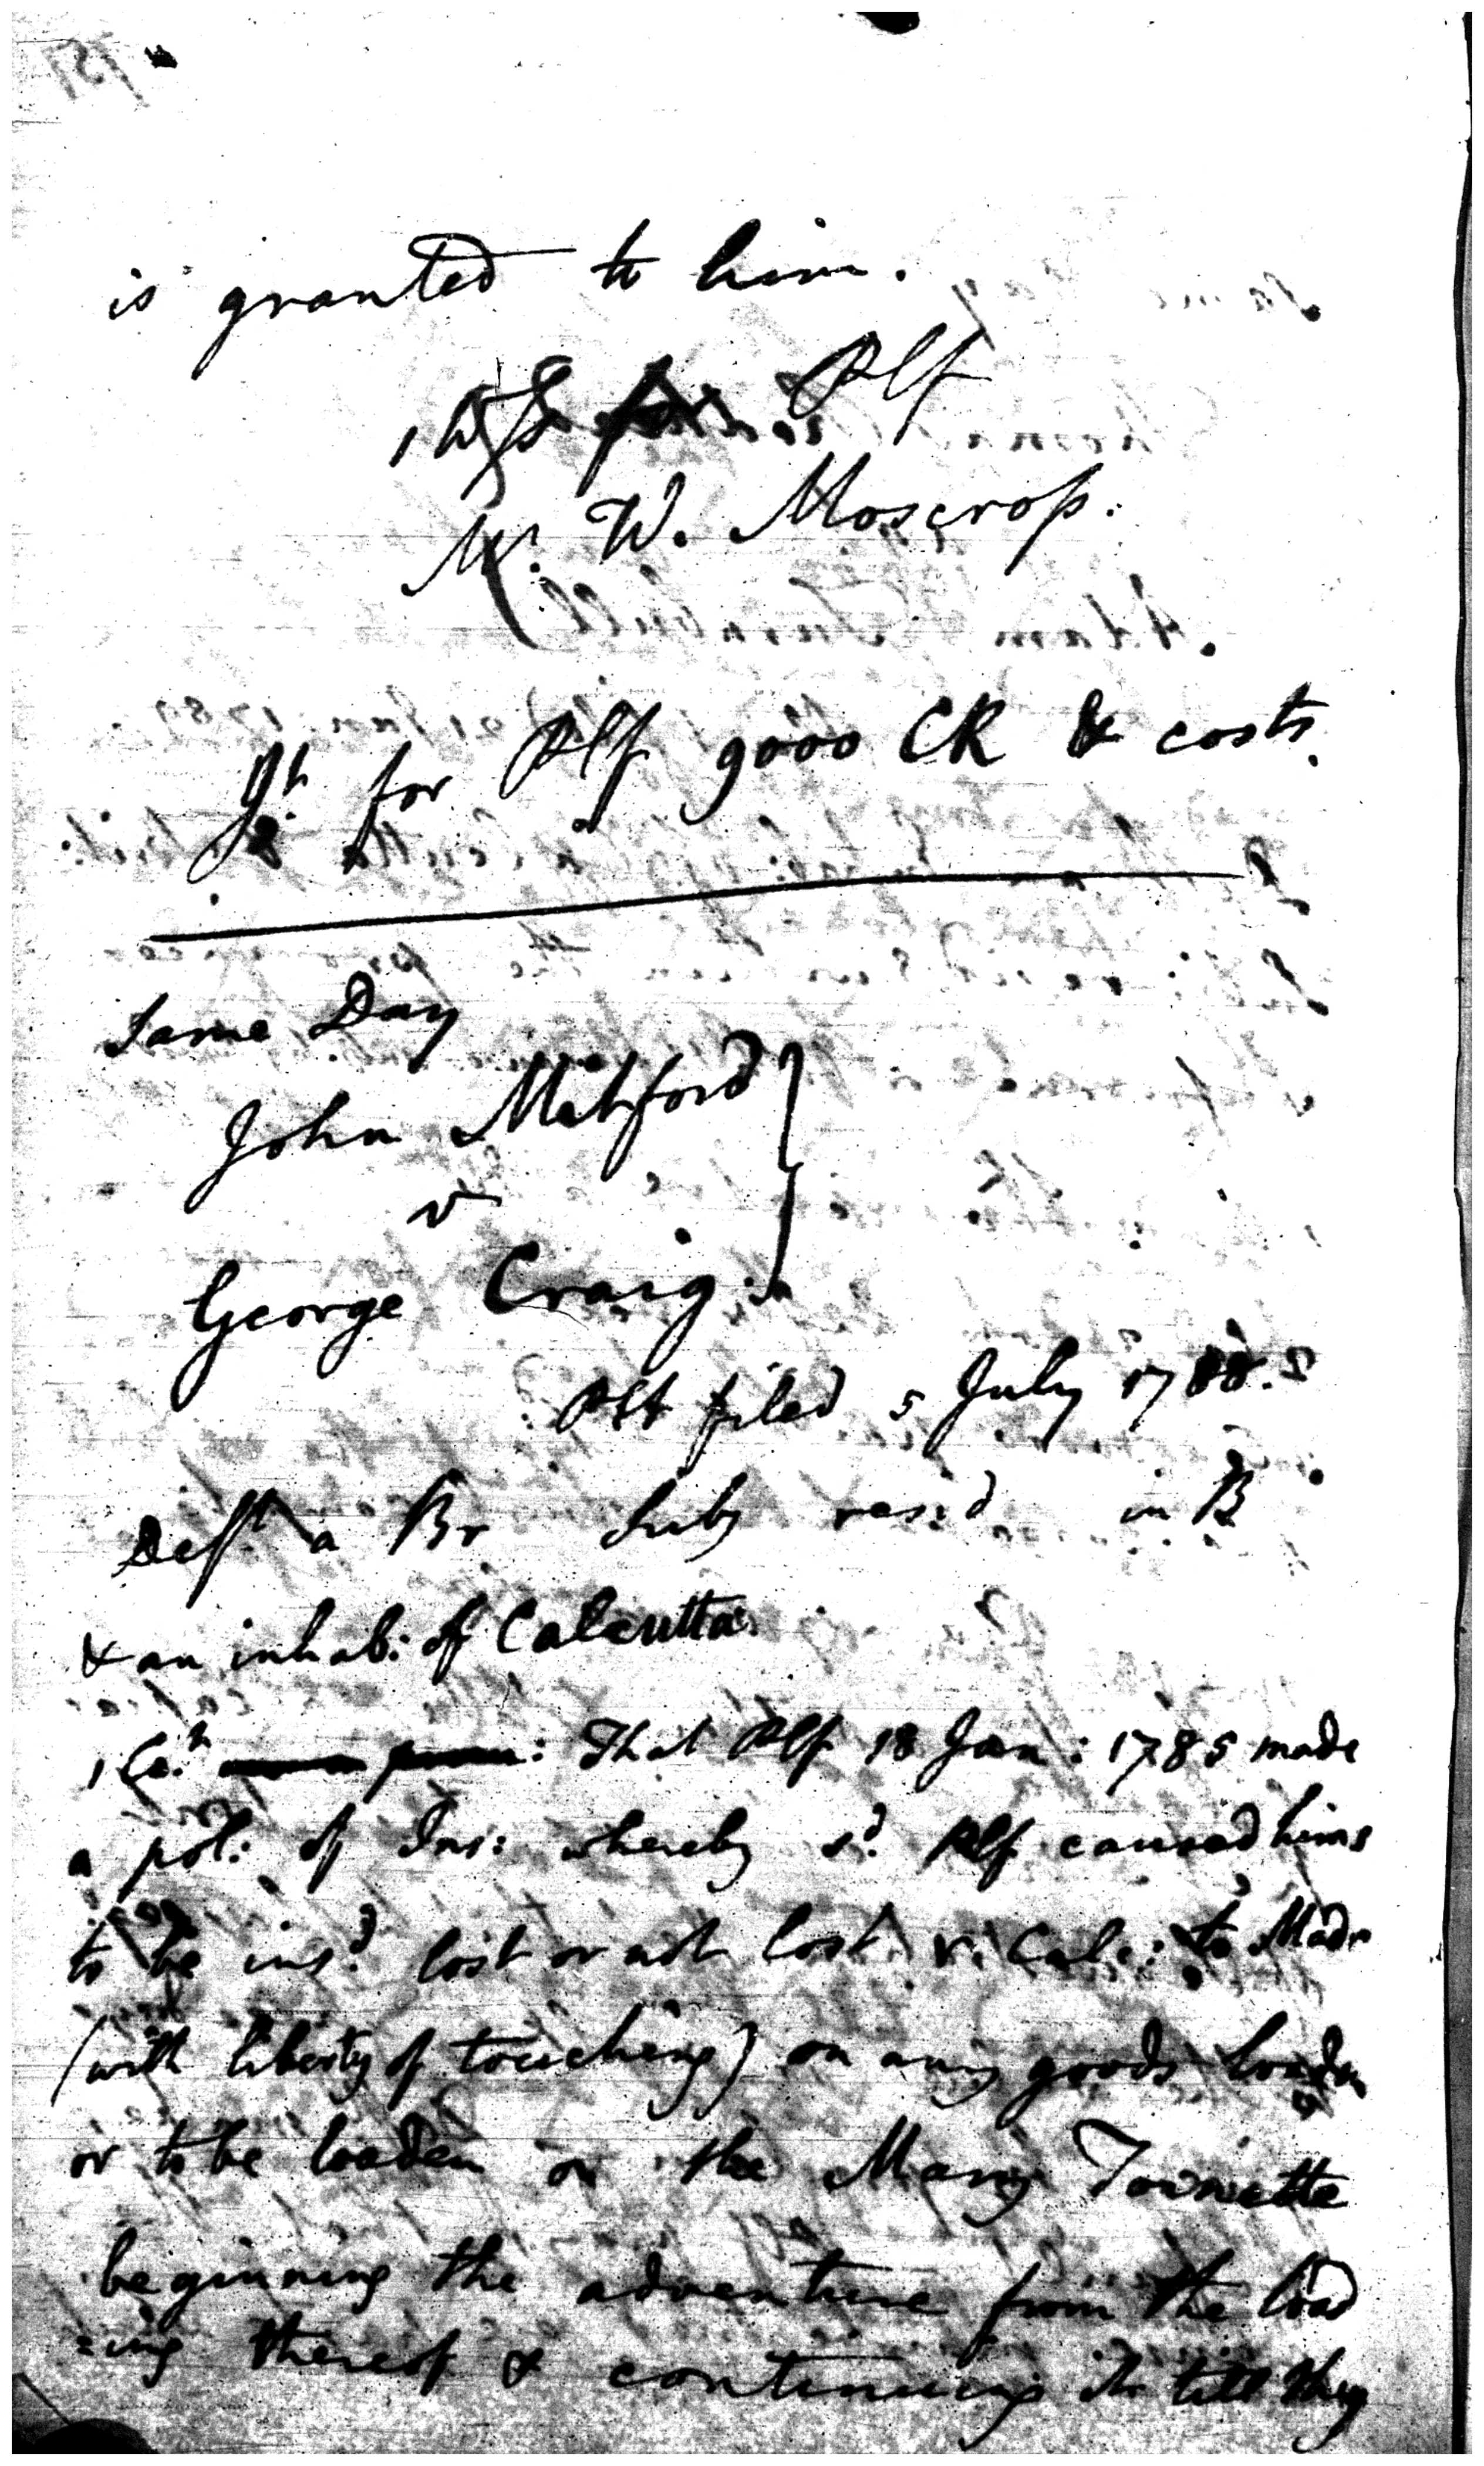 is granted to him.
1 Wss for Plf
Mr. W. Moscrop.
Jt. for Plf 9000 CR & costs.
Same Day
John Mitford
v
George Craig.
Plt filed 5 July 1788.
Deft. a Br Subj resid in B
& an inhab: of Calcutta
1 Ct. : That Plf 18 Jan: 1785 made
a pol: of Ins: whereby sd. Plf caused hims
to be insd. lost or not lost Calc: to Madr
(with liberty of touching) on any goods loaden
or to be loaden on the Mary Toinette
beginning the adventure from the load
=ing thereof & continuing it till they